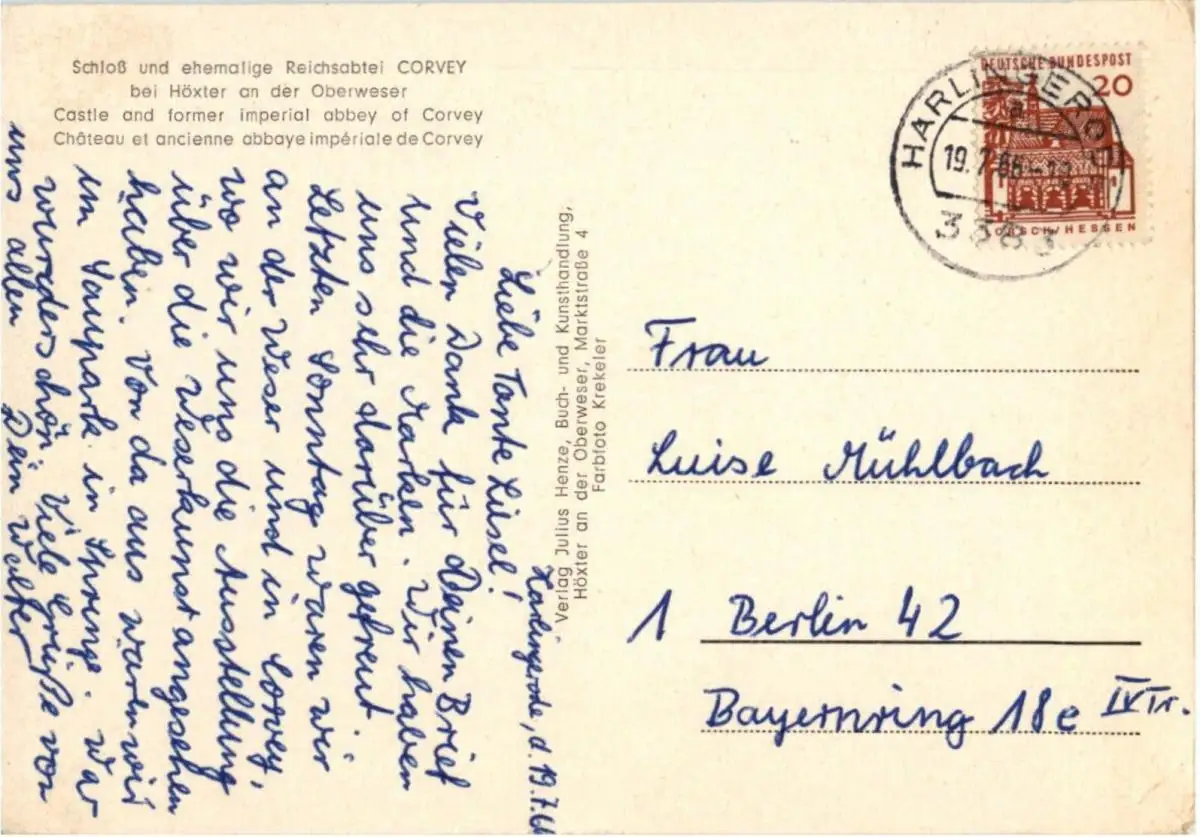 Schloß und ehemalige Reichsabtei CORVEY
bei Höxter an der Oberweser
Castle and former imperial abbey of Corvey
Château et ancienne abbaye impériale de Corvey
Harlingerode, d. 19.7.66
Liebe Tante Lisel!
Vielen Dank für Deinen Brief
und die Marken. Wir haben
uns sehr darüber gefreut.
Letzten Sonntag waren wir
an der Weser und in Corvey,
wo wir uns die Ausstellung
über die Weserkunst angesehen
haben. Von da aus waren wir
im Saupark in Springe. War
wunderschön. Viele Grüße von
uns allen Dein Walter
Verlag Julius Henze, Buch- und Kunsthandlung,
Höxter an der Oberweser, Marktstraße 4
Farbfoto Krekeler
DEUTSCHE BUNDESPOST
20
LORSCH/HESSEN
HARLINGERODE
a
19.7.66
3383
Frau
Luise Mühlbach
1 Berlin 42
Bayernring 18e IV Tr.